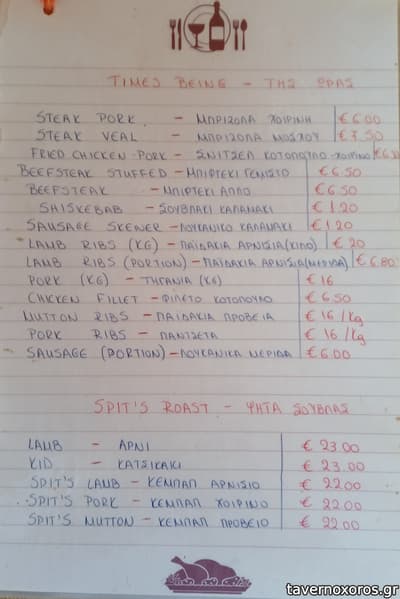 TIMES BEING - ΤΗΣ ΩΡΑΣ
STEAK PORK - ΜΠΡΙΖΟΛΑ ΧΟΙΡΙΝΗ €6.00
STEAK VEAL - ΜΠΡΙΖΟΛΑ ΜΟΣΧΟΥ €7.50
FRIED CHICKEN-PORK - ΣΝΙΤΣΕΛ ΚΟΤΟΠΟΥΛΟ-ΧΟΙΡΙΝΟ
BEEFSTEAK STUFFED - ΜΠΙΦΤΕΚΙ ΓΕΜΙΣΤΟ €6.50
BEEFSTEAK - ΜΠΙΦΤΕΚΙ ΑΠΛΟ €6.50
SHISKEBAB - ΣΟΥΒΛΑΚΙ ΚΑΛΑΜΑΚΙ €1.20
SAUSAGE SKEWER - ΛΟΥΚΑΝΙΚΟ ΚΑΛΑΜΑΚΙ €1.20
LAMB RIBS (KG) - ΠΑΙΔΑΚΙΑ ΑΡΝΙΣΙΑ (ΚΙΛΟ) €20
LAMB RIBS (PORTION) - ΠΑΙΔΑΚΙΑ ΑΡΝΙΣΙΑ (ΜΕΡΙΔΑ) €6.80
PORK (KG) - ΤΗΓΑΝΙΑ (KG) €16
CHICKEN FILLET - ΦΙΛΕΤΟ ΚΟΤΟΠΟΥΛΟ €6.50
MUTTON RIBS - ΠΑΙΔΑΚΙΑ ΠΡΟΒΕΙΑ €16/kg
PORK RIBS - ΠΑΝΤΣΕΤΑ €16/kg
SAUSAGE (PORTION) - ΛΟΥΚΑΝΙΚΑ ΜΕΡΙΔΑ €6.00
SPIT'S ROAST - ΨΗΤΑ ΣΟΥΒΛΑΣ
LAMB - ΑΡΝΙ €23.00
KID - ΚΑΤΣΙΚΑΚΙ €23.00
SPIT'S LAMB - ΚΕΜΠΑΠ ΑΡΝΙΣΙΟ €22.00
SPIT'S PORK - ΚΕΜΠΑΠ ΧΟΙΡΙΝΟ €22.00
SPIT'S MUTTON - ΚΕΜΠΑΠ ΠΡΟΒΕΙΟ €22.00
tavernoxoros.gr